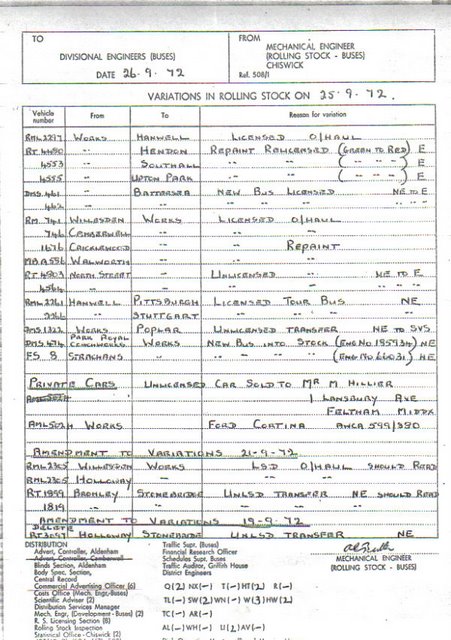 TO
DIVISIONAL ENGINEERS (BUSES)
DATE 26.9.72
FROM
MECHANICAL ENGINEER
(ROLLING STOCK - BUSES)
CHISWICK
Ref. 508/1
VARIATIONS IN ROLLING STOCK ON 25.9.72.
Vehicle number From To Reason for variation
RML2297 WORKS HANWELL LICENSED O/HAUL
RT4490 -"- HENDON REPAINT RELICENSED (GREEN TO RED) E
4553 -"- SOUTHALL -"- -"- ( -"- -"- -"- ) E
4555 -"- UPTON PARK -"- -"- ( -"- -"- -"- ) E
DMS461 -"- BATTERSEA NEW BUS LICENSED NE TO E
462 -"- -"- -"- -"- -"-
RM 741 WILLESDEN WORKS LICENSED O/HAUL
746 CAMBERWELL -"- -"- -"-
1676 CRICKLEWOOD -"- -"- REPAINT
MBA556 WALWORTH -"- -"- -"-
RT4903 NORTH STREET -"- UNLICENSED -"- NE TO E
4564 -"- -"- -"- -"- -"-
RML2261 HANWELL PITTSBURGH LICENSED TOUR BUS NE
-"- STUTTGART -"- -"- -"-
DMS1322 WORKS POPLAR UNLICENSED TRANSFER NE TO SVS
PARK ROYAL
DMS474 COACHWORKS WORKS NEW BUS INTO STOCK (ENG NO 185934) NE
FS 8 STRACHANS -"- -"- -"- (ENG NO 66031) NE
PRIVATE CARS UNLICENSED CAR SOLD TO MR M HILLIER
AML502H 1 LANSBURY AVE
FELTHAM MIDDX
AML502H WORKS FORD CORTINA AWCA 599/380
AMENDMENT TO VARIATIONS 21-9-72
RML2305 WILLESDEN WORKS LSD O/HAUL SHOULD READ
RML2305 HOLLOWAY -"- -"- -"-
RT1899 BROMLEY STONEBRIDGE UNLSD TRANSFER NE SHOULD READ
1819 -"- -"- -"- -"-
AMENDMENT TO VARIATIONS 19-9-72
DELETE
RT3097 HOLLOWAY STONEBRIDGE UNLSD TRANSFER NE
DISTRIBUTION
Advert, Controller, Aldenham
Advert, Controller, Camberwell
Blinds Section, Aldenham
Body Spec, Section,
Central Record
Commercial Advertising Officer (6)
Costs Office (Mech. Engr.-Buses)
Scientific Adviser (2)
Distribution Services Manager
Mech. Engr. (Development - Buses) (2)
R. S. Licensing Section (8)
Rolling Stock Inspection
Statistical Office - Chiswick (2)
Traffic Supr. (Buses)
Financial Research Officer
Schedules Supt. Buses
Traffic Auditor, Griffith House
District Engineers
Q(2) NX(—) T(—) HT(2) R(—)
TL(—) SW(2) WN(—) W(3) HW(2)
TC(—) AR(—)
AL(—) WH(—) U(2) AV(—)
MECHANICAL ENGINEER
(ROLLING STOCK - BUSES)